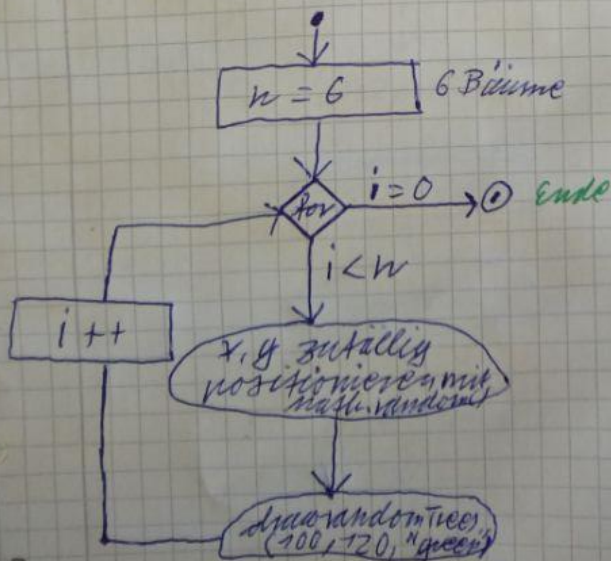 n = 6
6 Bäume
for
i = 0
Ende
i < n
i ++
x, y zufällig
positionieren mit
math.random()
drawrandomTrees
(100, 120, "green")